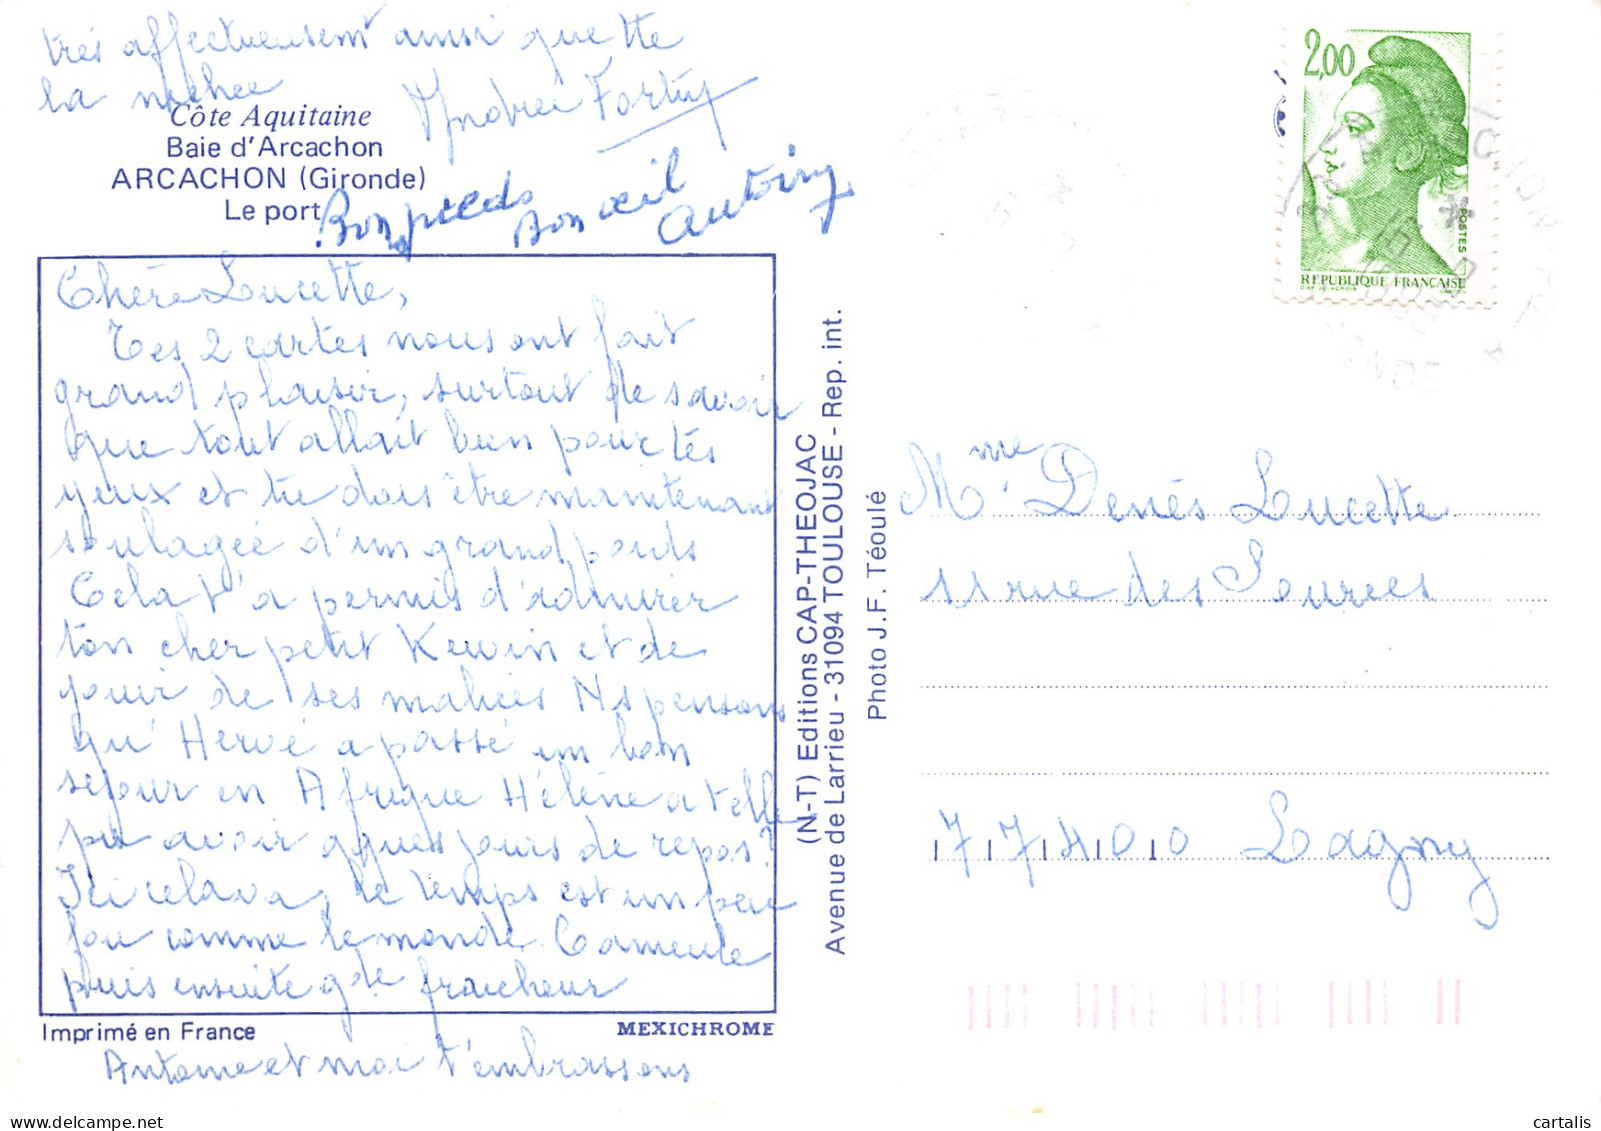 très affectueusement ainsi que tte
la nichée Andrée Fortin
Côte Aquitaine
Baie d'Arcachon
ARCACHON (Gironde)
Le port
Bon pieds Bon œil
Chère Lucette,
Tes 2 cartes nous ont fait
grand plaisir, surtout de savoir
que tout allait bien pour tes
yeux et tu dois être maintenant
soulagée d'un grand poids
Cela t'a permis d'admirer
ton cher petit Kewin et de
jouir de ses malices Ns pensons
qu'Hervé a passé un bon
séjour en Afrique Hélène a t elle
pu avoir qques jours de repos?
Ici cela va, le temps est un peu
fou comme le monde
puis ensuite gde fraicheur
Imprimé en France
MEXICHROME
Antoine et moi t'embrassons
(N-T) Editions CAP-THEOJAC
Avenue de Larrieu - 31094 TOULOUSE - Rep. int.
Photo J.F. Téoulé
2,00
POSTES
REPUBLIQUE FRANÇAISE
Mme Denés Lucette
11 rue des Sources
77400 Lagny
cartalis